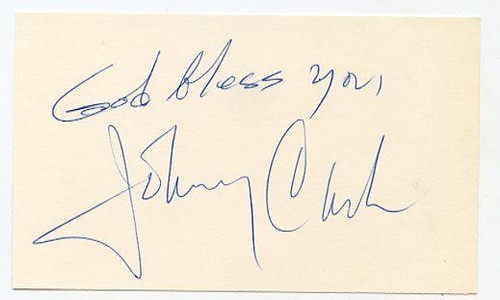 God bless you,
Johnny Cash